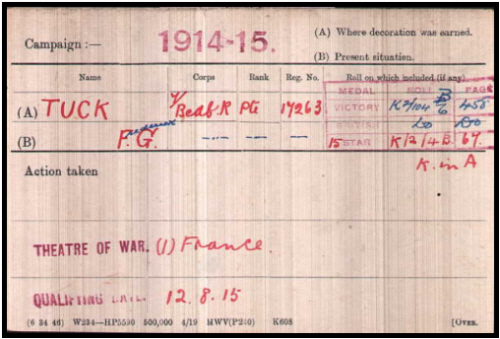 Campaign :— 1914-15.
(A) Where decoration was earned.
(B) Present situation.
Name Corps Rank Reg. No. Roll on which included (if any).
MEDAL ROLL PAGE
(A) TUCK 7/Bedf. R Pte 17263 VICTORY K2/104 B6 458
(B) F. G. — — — BRITISH do do
15 STAR K/2/4 B. 67.
K. in A
Action taken
THEATRE OF WAR. (1) France.
QUALIFYING DATE. 12.8.15
(6 34 46) W234—HP5590 500,000 4/19 HWV(P240) K608 [Over.